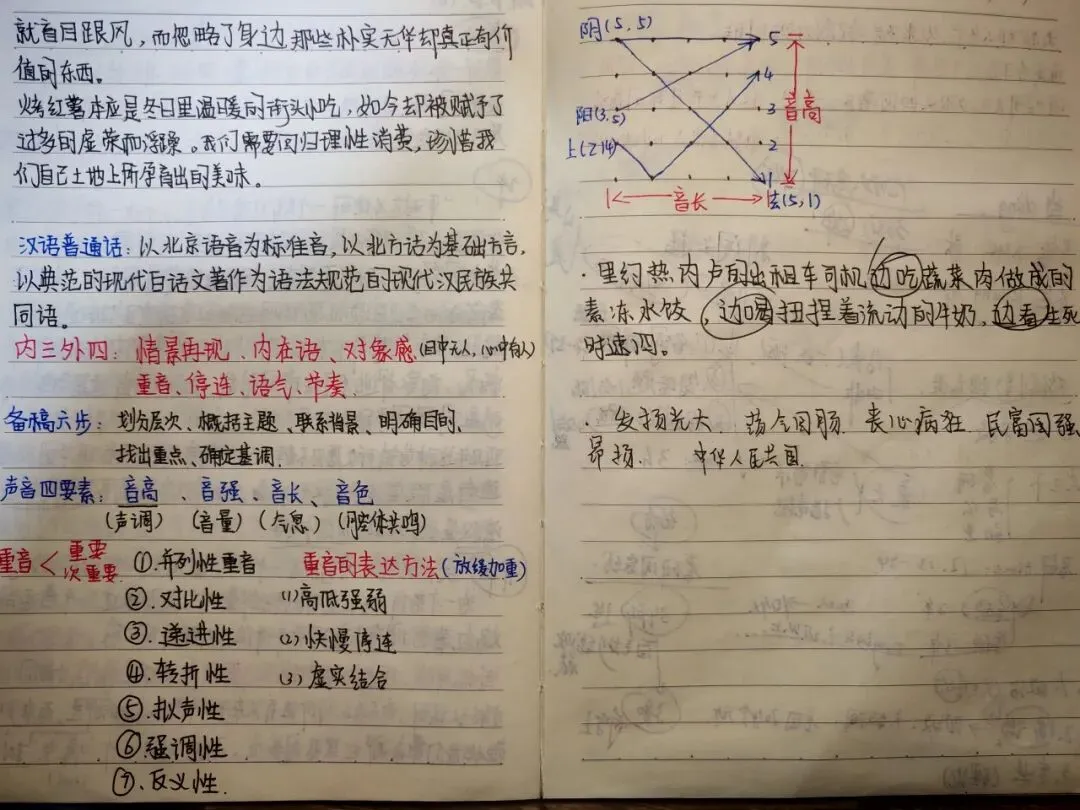 就盲目跟风，而忽略了身边那些朴实无华却真正有价
值的东西。
烤红薯本应是冬日里温暖的街头小吃，如今却被赋予了
过多的虚荣而浮躁。我们需要回归理性消费，珍惜我
们自己土地上所孕育出的美味。
汉语普通话：以北京语音为标准音，以北方话为基础方言，
以典范的现代白话文著作为语法规范的现代汉民族共
同语。
内三外四：情景再现、内在语、对象感(目中无人，心中有人)
重音、停连、语气、节奏
备稿六步：划分层次、概括主题、联系背景、明确目的、
找出重点、确定基调.
声音四要素：音高、音强、音长、音色
(声调) (音量) (气息) (腔体共鸣)
重音< 重要 次重要
①.并列性重音
②.对比性
③.递进性
④.转折性
⑤.拟声性
⑥强调性
⑦.反义性.
重音的表达方法(放缓加重)
(1)高低强弱
(2)快慢停连
(3)虚实结合
阴(5,5) 5
4
阳(3,5) 3 音高
上(214) 2
音长 1 去(5,1)
·里约热内卢的出租车司机边吃蔬菜肉做成的
素冻水饺，边喝扭捏着流动的牛奶，边看生死
时速四。
·发扬光大 荡气回肠 丧心病狂 民富国强
昂扬 中华人民共国